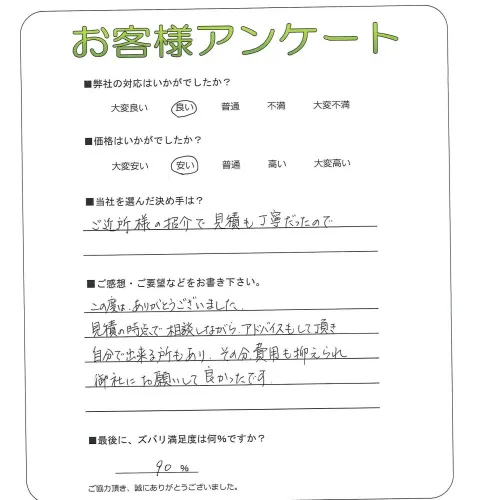 お客様アンケート
■弊社の対応はいかがでしたか？
大変良い 良い 普通 不満 大変不満
■価格はいかがでしたか？
大変安い 安い 普通 高い 大変高い
■当社を選んだ決め手は？
ご近所様の紹介で見積も丁寧だったので
■ご感想・ご要望などをお書き下さい。
この度は、ありがとうございました。
見積の時点で相談しながら、アドバイスもして頂き
自分で出来る所もあり、その分費用も抑えられ
御社にお願いして良かったです。
■最後に、ズバリ満足度は何%ですか？
90 %
ご協力頂き、誠にありがとうございました。